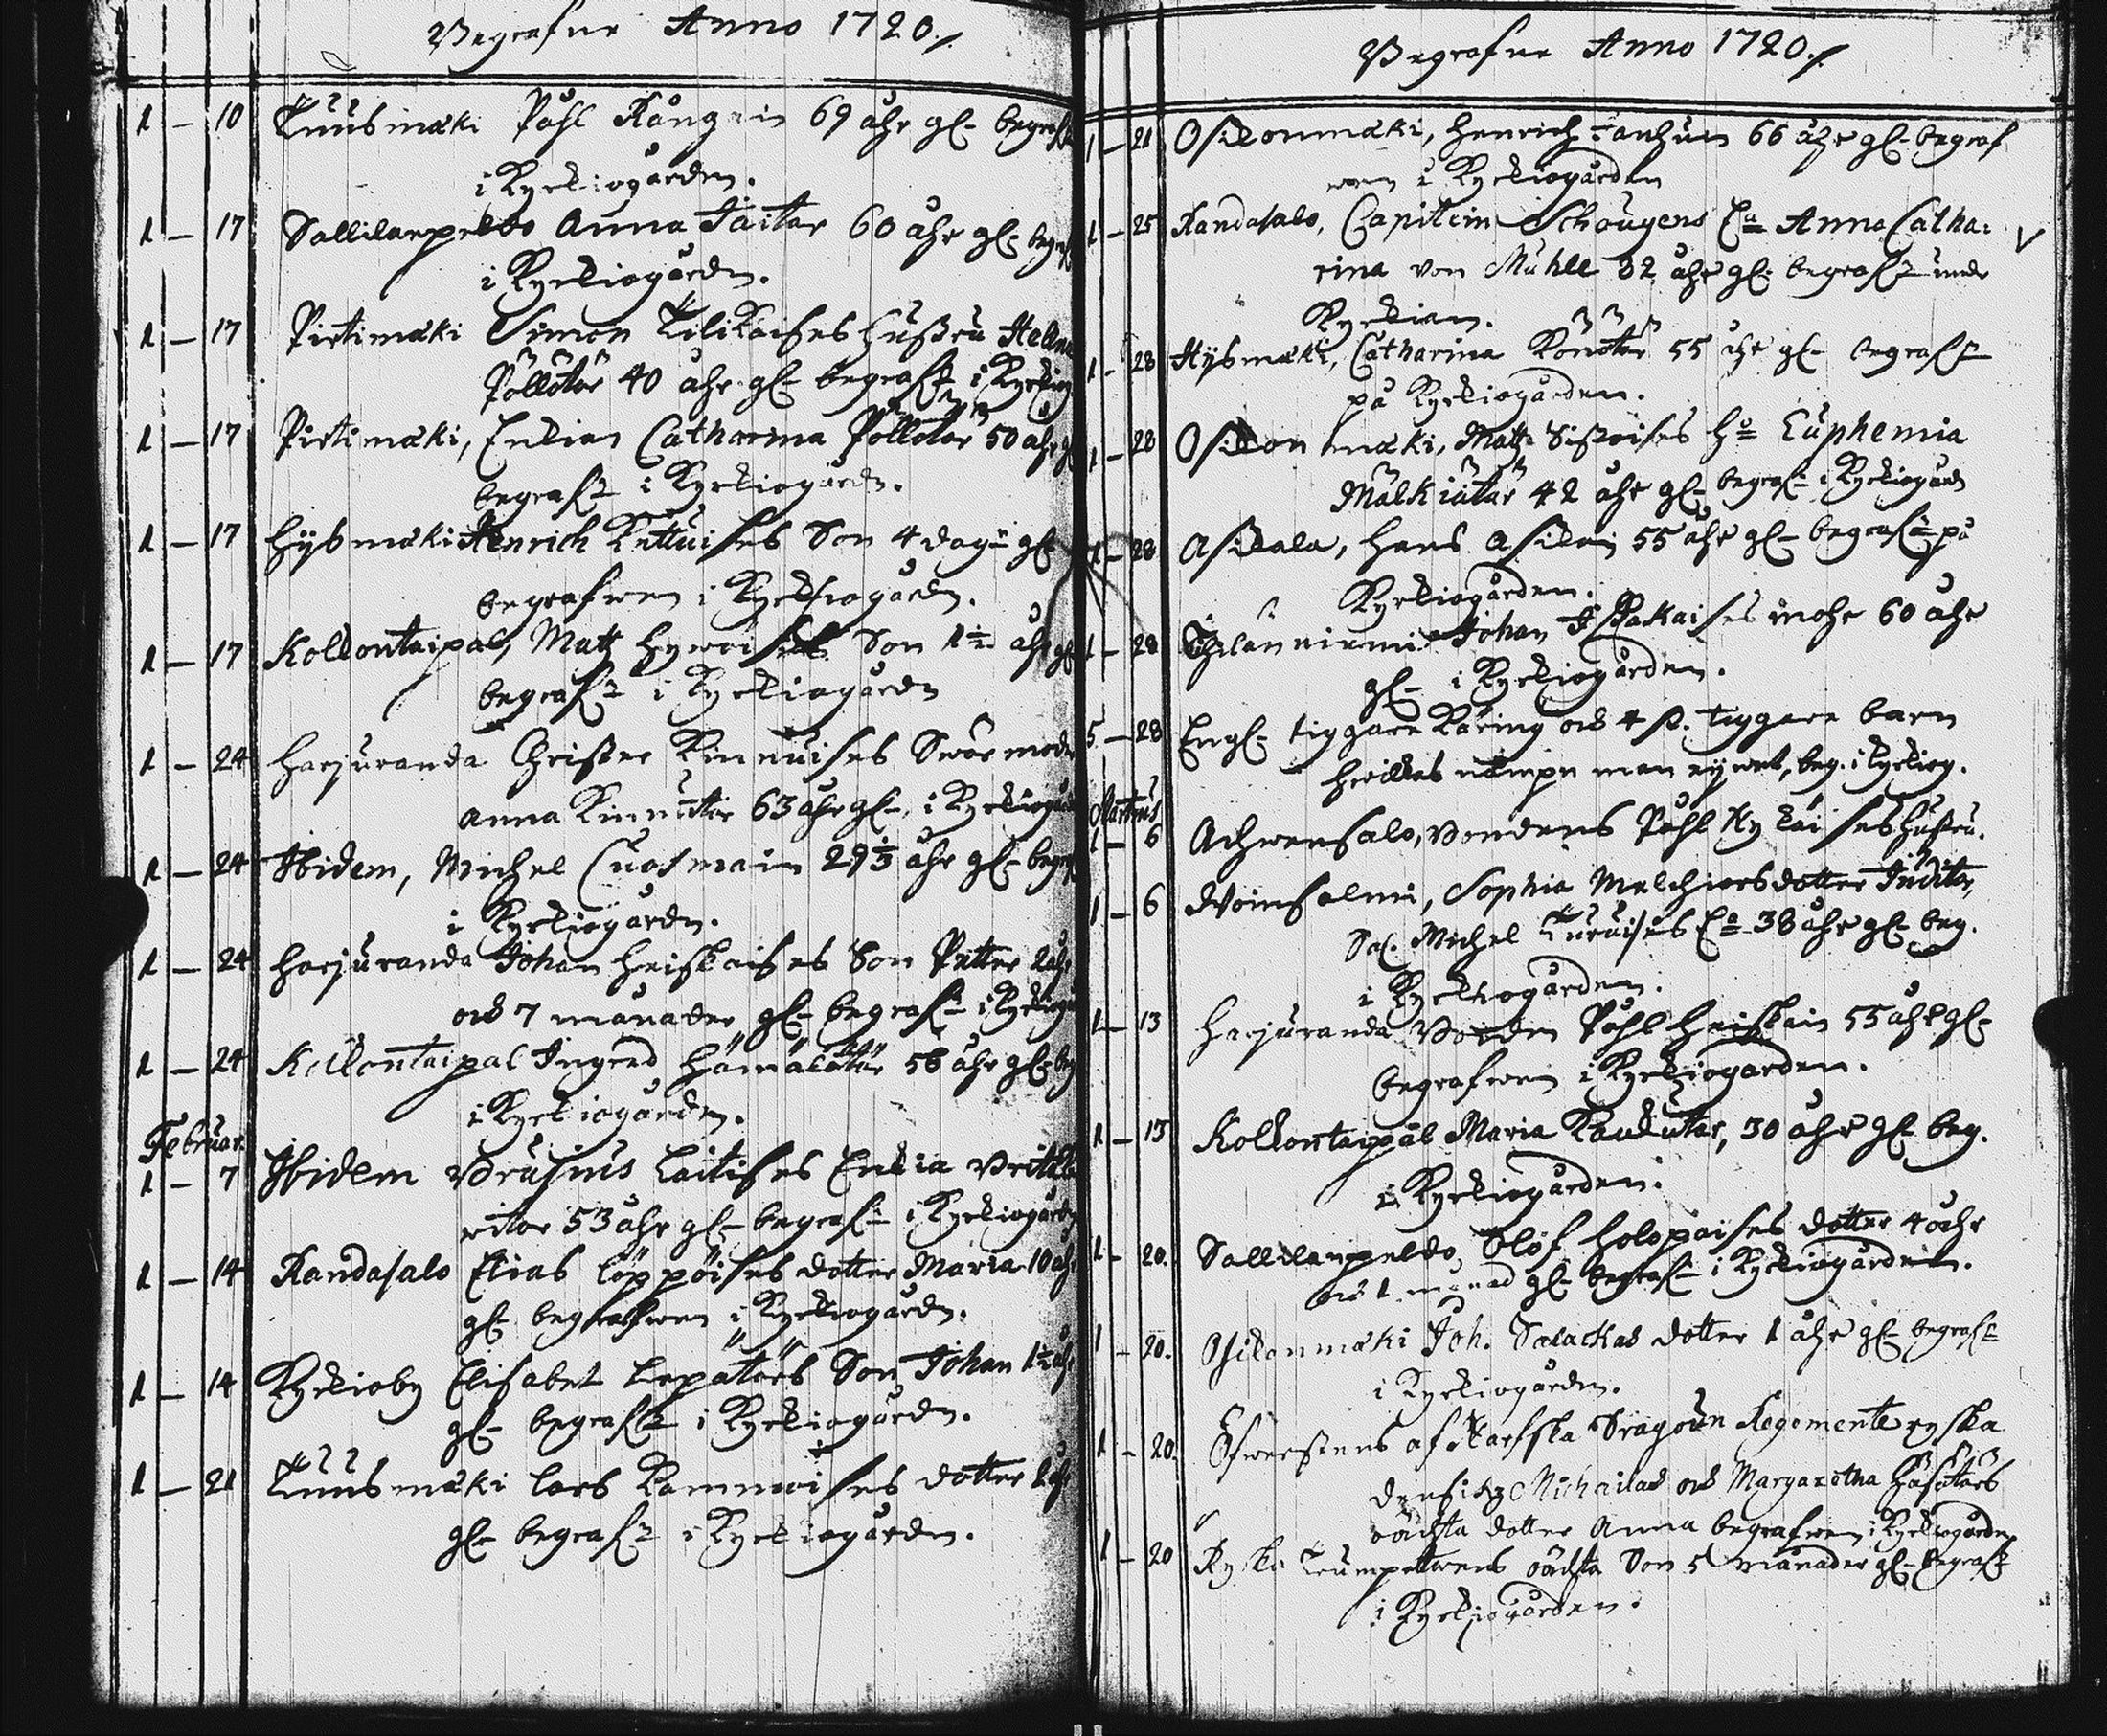 Begrafne Anno 1720./.
1 – 10 Tuusmäki Påhl Kångain 69 åhr gl. begrafn
i Kyrkiogården.
1 – 17 Sallilanpeldo Anna Taitar 60 åhr gl. begraf
i Kyrkiogårdn.
1 – 17 Pirtimäki Simon Kilikaises hustru Helena
Pöllötar 40 åhr gl. begrafn i Kyrkiog
1 – 17 Pirtimäki, Enkian Catharina Pöllötar 50 åhr g
begrafn i Kyrkiogårdn.
1 – 17 Hysmäki Henrich Kettuises Son 4 dagr gl.
begrafwen i Kyrkiogårdn.
1 – 17 Kolkontaipal, Matz Hywäises Son åhr gl
begrafn i Kyrkiogårdn
1 – 24 Harjuranda Christer Kinnuises Swärmoder
Anna Kinnutar 63 åhr gl. i Kyrkiogård
1 – 24 Ibidem, Michel Cuosmain 29 åhr gl. begraf
i Kyrkiogårdn.
1 – 24 Harjuranda Johan Heiskaises Son Petter 2 åhr
och 7 månader gl. begrafn i Kyrkiogå
1 – 24 Kolkontaipal Ingred Hämälätär 56 åhr gl. beg
i Kyrkiogården.
Februar.
1 – 7 Ibidem Brusius Laitises Enkia
53 åhr gl. begrafn i Kyrkiogård
1 – 14 Randasalo Elias Löppöises dotter Maria 10 åhr
gl. begrafwen i Kyrkiogårdn.
1 – 14 Kyrkioby Elisabet Lepätärs Son Johan 1½ åhr
gl. begrafn i Kyrkiogårdn.
1 – 21 Tuusmäki Lars Rammoises dotter 2 åhr
gl. begrafn i Kyrkiogården.
Begrafne Anno 1720./.
1 – 21 Osikonmäki, Henrich Tanhuin 66 åhr gl. begraf
wen i Kyrkiogården
1 – 25 Randasalo, Capitein Schougens Ea Anna Catha:
rina von Mühle 32 åhr gl. begrafn under
Kyrkian.
1 – 28 Hysmäki, Catharina Konötär 55 åhr gl. begrafn
på Kyrkiogården.
1 – 28 Osikonmäki, Matz Siswises Ho Euphemia
Mälkiätär 42 åhr gl. begrafn i Kyrkiogård
1 – 28 Asikala, Hans Asikain 55 åhr gl. begrafn på
Kyrkiogården.
1 – 28 Johan Pakaises mohr 60 åhr
gl. i Kyrkiogården.
5 – 28 Engl. tiggare Käring och 4 st. tiggare barn
hwilkas nampn man ey wet, beg. i Kyrkiog.
Martius
1 – 6 Achwensalo, Bondens Påhl Hykäises hustru.
1 – 6 Woinsalmi, Sophia Melchiorsdotter Juditar,
Sal. Michel Turuises Ea 38 åhr gl. beg.
i Kyrkiogården.
1 – 13 Harjuranda Bonden Påhl Heiskain 55 åhr gl.
begrafwen i Kyrkiogården.
1 – 13 Kolkontaipal Maria Laukutar, 30 åhr gl. beg.
i Kyrkiogården.
1 – 20. Sallilanpeldo, Olof Holopaises dotter 4 åhr
och 1 månad gl. begrafn i Kyrkiogården.
1 – 20. Osikonmäki Joh. Salackas dotter 1 åhr gl. begrafn
i Kyrkiogården.
1 – 20. Öfwerstens af Dragoun Regemente ryska
Michailas och Margaretha Häsätärs
oächta dotter Anna begrafwen i Kyrkiogården
1 – 20 Ryska Trumpettrens oächta Son 5 månader gl. begrafn
i Kyrkiogården.